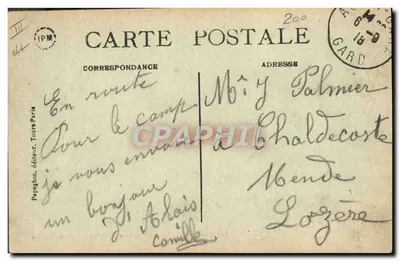 200
III
IPM
CARTE POSTALE
CORRESPONDANCE
ADRESSE
GARD
En route
Pour le camp
je vous envoie
un bonjour
d'Alais
Camille
Mr J Palmier
a Chaldecoste
Mende
Lozère
CPHARTE
Papeghin, éditeur, Tours-Paris